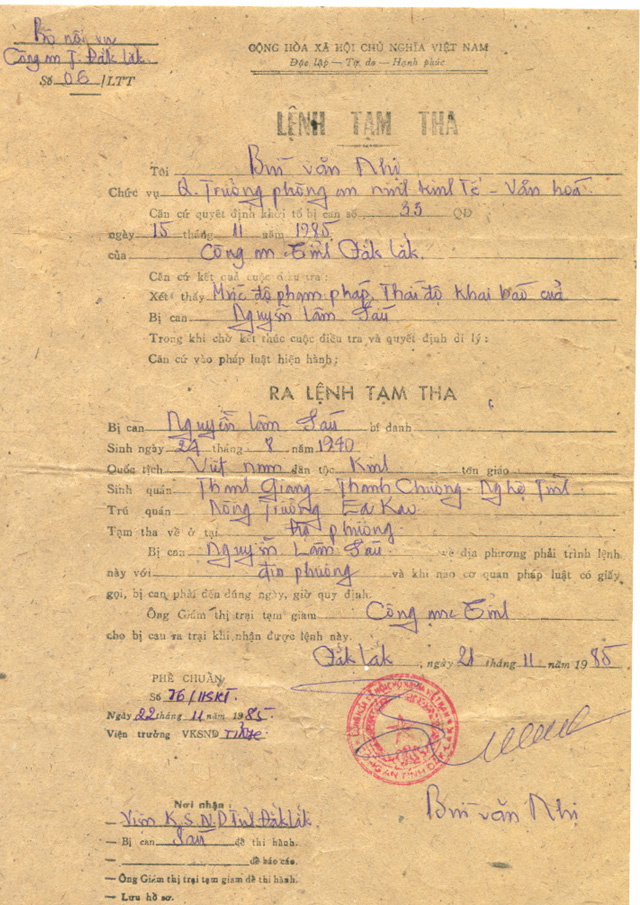 Bộ nội vụ
Công an T. Đắk Lắk.
Số 06/LTT
CỘNG HÒA XÃ HỘI CHỦ NGHĨA VIỆT NAM
Độc lập — Tự do — Hạnh phúc
LỆNH TẠM THA
Tôi Bùi Văn Nhị
Chức vụ Q. Trưởng phòng an ninh kinh tế - Văn hoá.
Căn cứ quyết định khởi tố bị can số 35 QĐ
ngày 15 tháng 11 năm 1985
của Công an Tỉnh Đắk Lắk.
Căn cứ kết quả cuộc điều tra:
Xét thấy Mức độ phạm pháp, Thái độ khai báo của
Bị can Nguyễn Lâm Sáu
Trong khi chờ kết thúc cuộc điều tra và quyết định di lý:
Căn cứ vào pháp luật hiện hành;
RA LỆNH TẠM THA
Bị can Nguyễn Lâm Sáu bí danh
Sinh ngày 27 tháng 8 năm 1940
Quốc tịch Việt nam dân tộc Kinh tôn giáo
Sinh quán Thanh Giang - Thanh Chương - Nghệ Tĩnh.
Trú quán Nông Trường Ea Kao
Tạm tha về ở tại địa phương
Bị can Nguyễn Lâm Sáu về địa phương phải trình lệnh
này với địa phương và khi nào cơ quan pháp luật có giấy
gọi, bị can phải đến đúng ngày, giờ quy định.
Ông Giám thị trại tạm giam Công an Tỉnh
cho bị can ra trại khi nhận được lệnh này.
Đắk Lắk, ngày 21 tháng 11 năm 1985
PHÊ CHUẨN
Số 76/KSĐT
Ngày 22 tháng 11 năm 1985.
Viện trưởng VKSND Tỉnh
Bùi Văn Nhị
Nơi nhận:
— Viện K.S.N.D Tỉnh Đắk Lắk.
— Bị can Sáu để thi hành.
— để báo cáo.
— Ông Giám thị trại tạm giam để thi hành.
— Lưu hồ sơ.